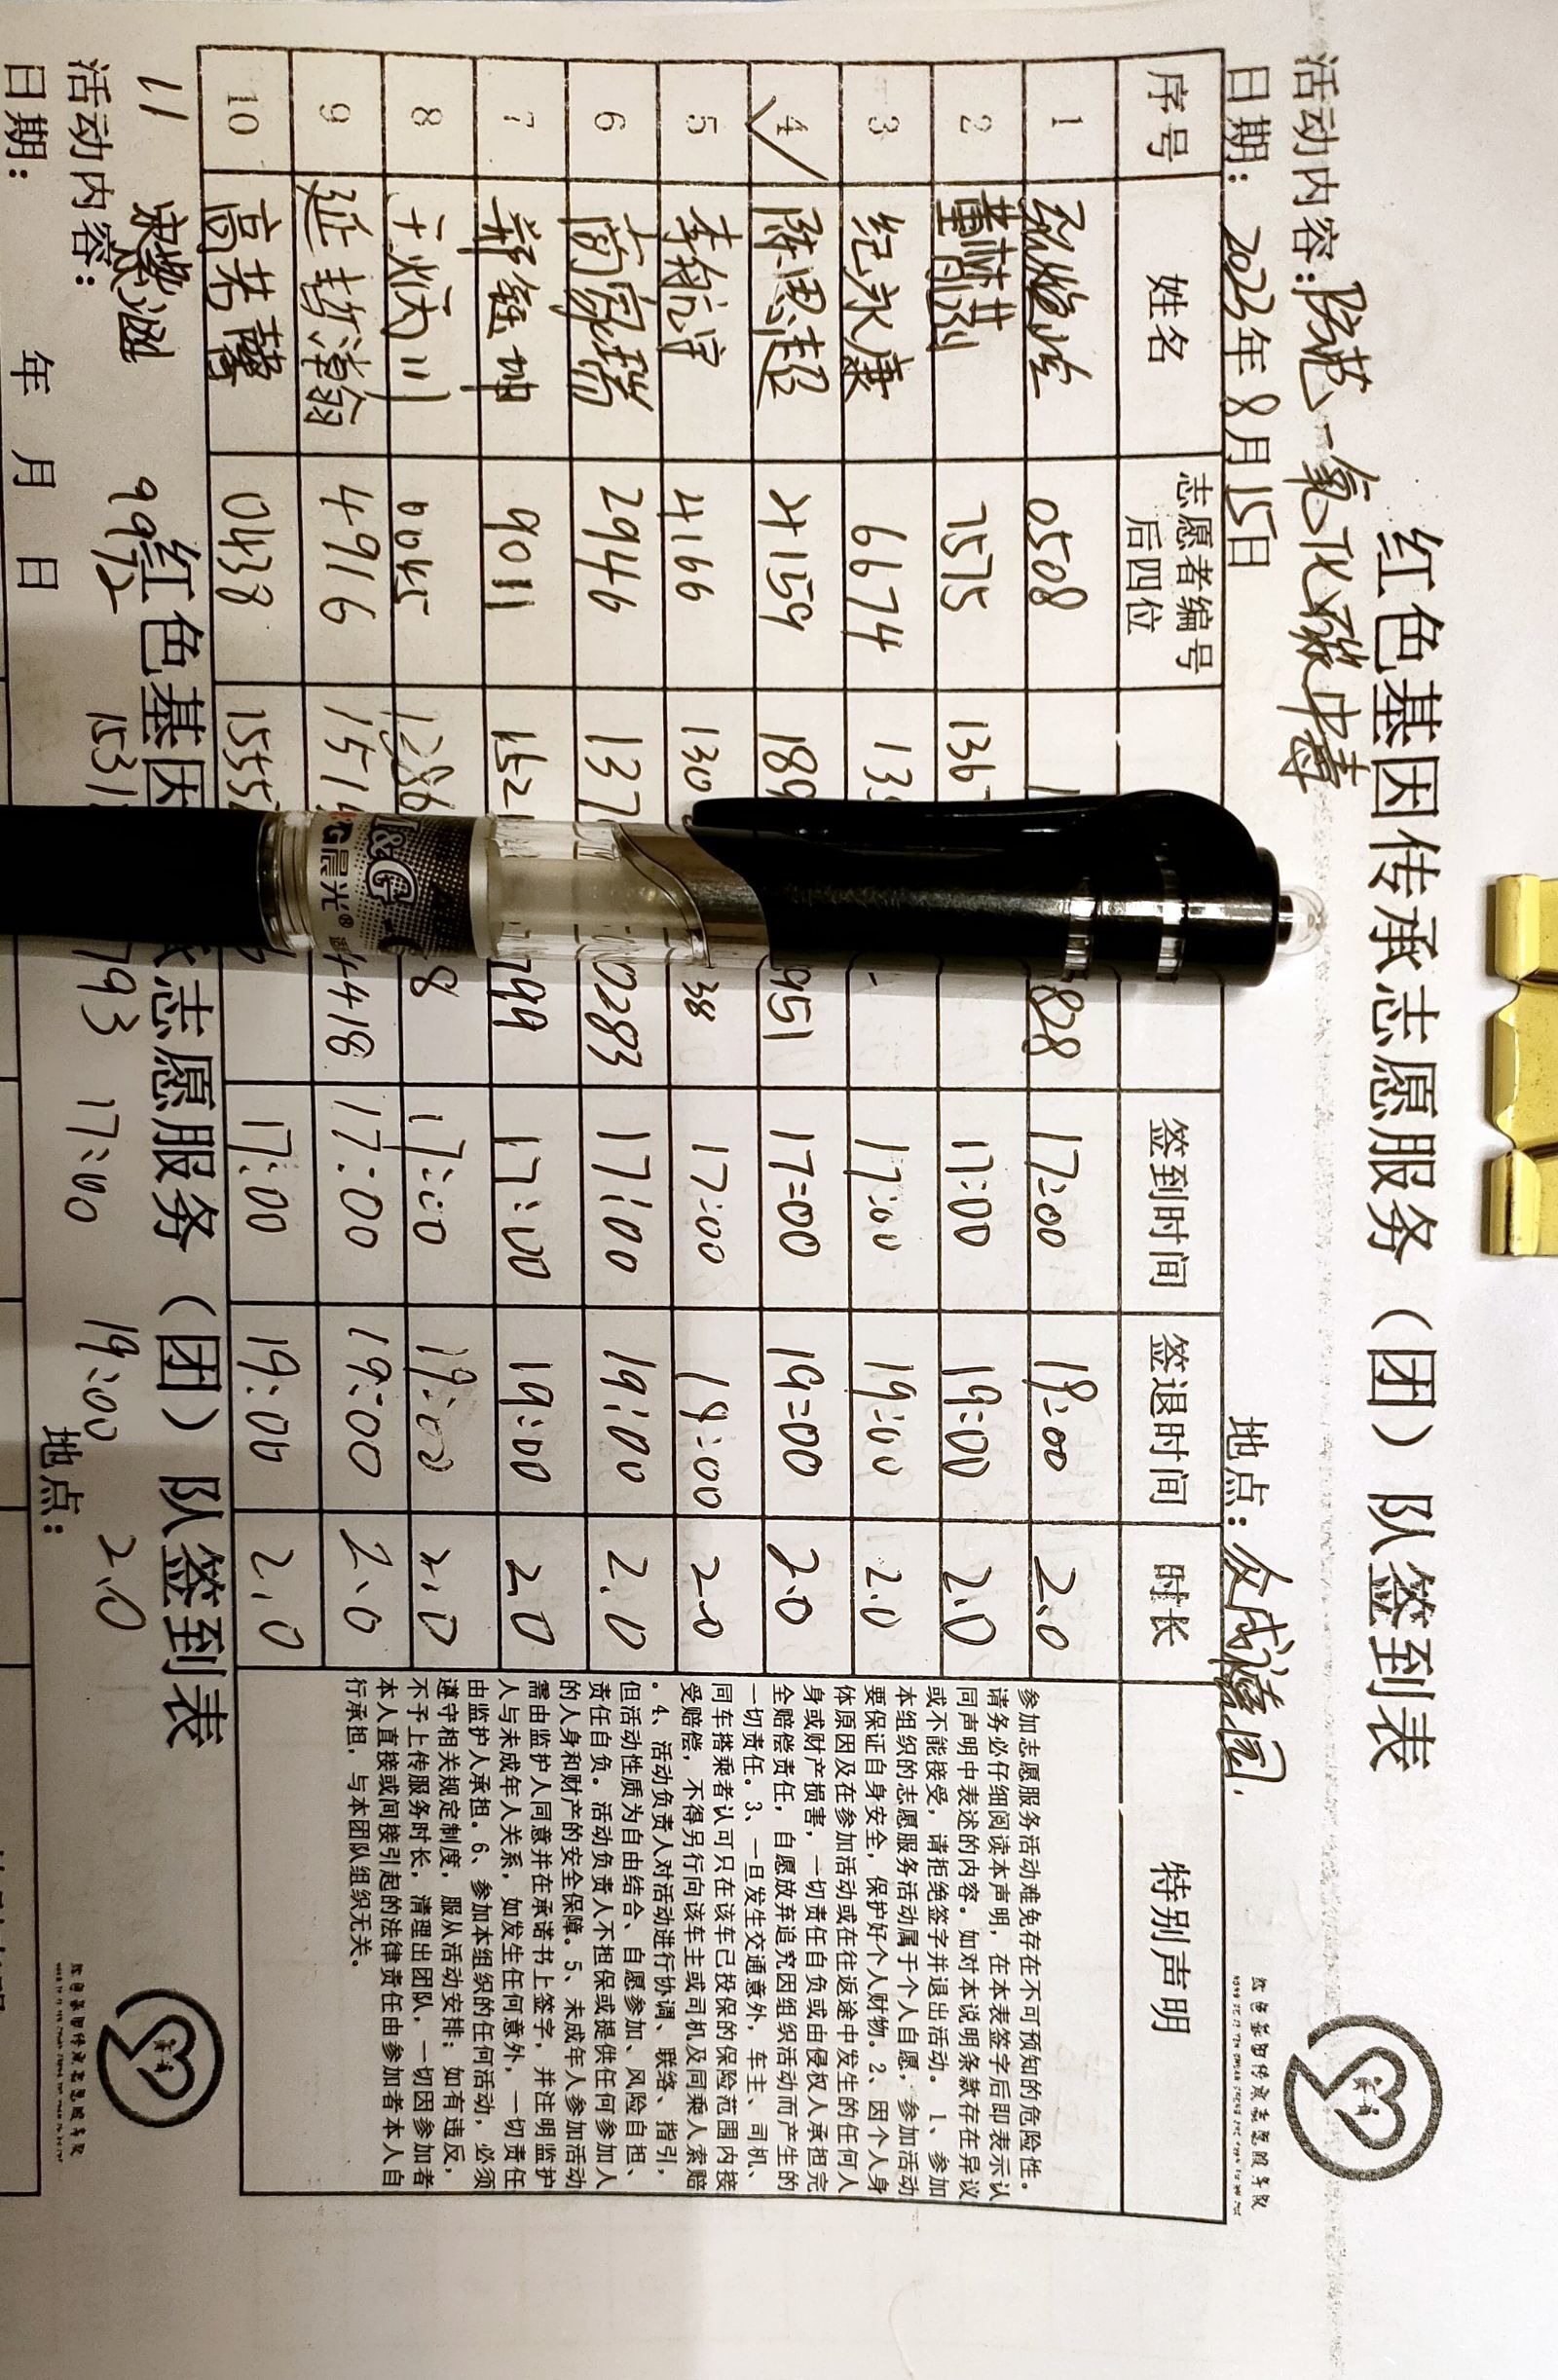 红色基因传承志愿服务（团）队签到表
活动内容：防范一氧化碳中毒
日期：2023年8月15日 地点：友成馨园.
序号 姓名 志愿者编号后四位 签到时间 签退时间 时长 特别声明
1 0508 1 828 17:00 19:00 2.0
2 7575 136 17:00 19:00 2.0
3 纪永康 6674 13 17:00 19:00 2.0
4 陈思超 4159 189 951 17:00 19:00 2.0
5 李航宇 4166 130 38 17:00 19:00 2.0
6 蔺家瑞 2946 137 0283 17:00 19:00 2.0
7 郭鑫坤 9011 152 799 17:00 19:00 2.0
8 于炳川 0045 8 17:00 19:00 2.0
9 延哲瀚 4916 151 4418 17:00 19:00 2.0
10 高若馨 0438 1555 17:00 19:00 2.0
参加志愿服务活动难免存在不可预知的危险性。
请务必仔细阅读本声明，在本表签字后即表示认
同声明中表述的内容。如对本说明条款存在异议
或不能接受，请拒绝签字并退出活动。 1、参加
本组织的志愿服务活动属于个人自愿，参加活动
要保证自身安全，保护好个人财物。2、因个人身
体原因及在参加活动或在往返途中发生的任何人
身或财产损害，一切责任自负或由侵权人承担完
全赔偿责任，自愿放弃追究因组织活动而产生的
一切责任。3、一旦发生交通意外，车主、司机、
同车搭乘者认可只在该车已投保的保险范围内接
受赔偿，不得另行向该车主或司机及同乘人索赔
。4、活动负责人对活动进行协调、联络、指引，
但活动性质为自由结合、自愿参加、风险自担、
责任自负。活动负责人不担保或提供任何参加人
的人身和财产的安全保障。5、未成年人参加活动
需由监护人同意并在承诺书上签字，并注明监护
人与未成年人关系，如发生任何意外，一切责任
由监护人承担。6、参加本组织的任何活动，必须
遵守相关规定制度，服从活动安排；如有违反，
不予上传服务时长，清理出团队，一切因参加者
本人直接或间接引起的法律责任由参加者本人自
行承担，与本团队组织无关。
红色基因 承志愿服务（团）队签到表
11 9972 1531 793 17:00 19:00 2.0
活动内容：
日期： 年 月 日 地点：
M&G晨光®